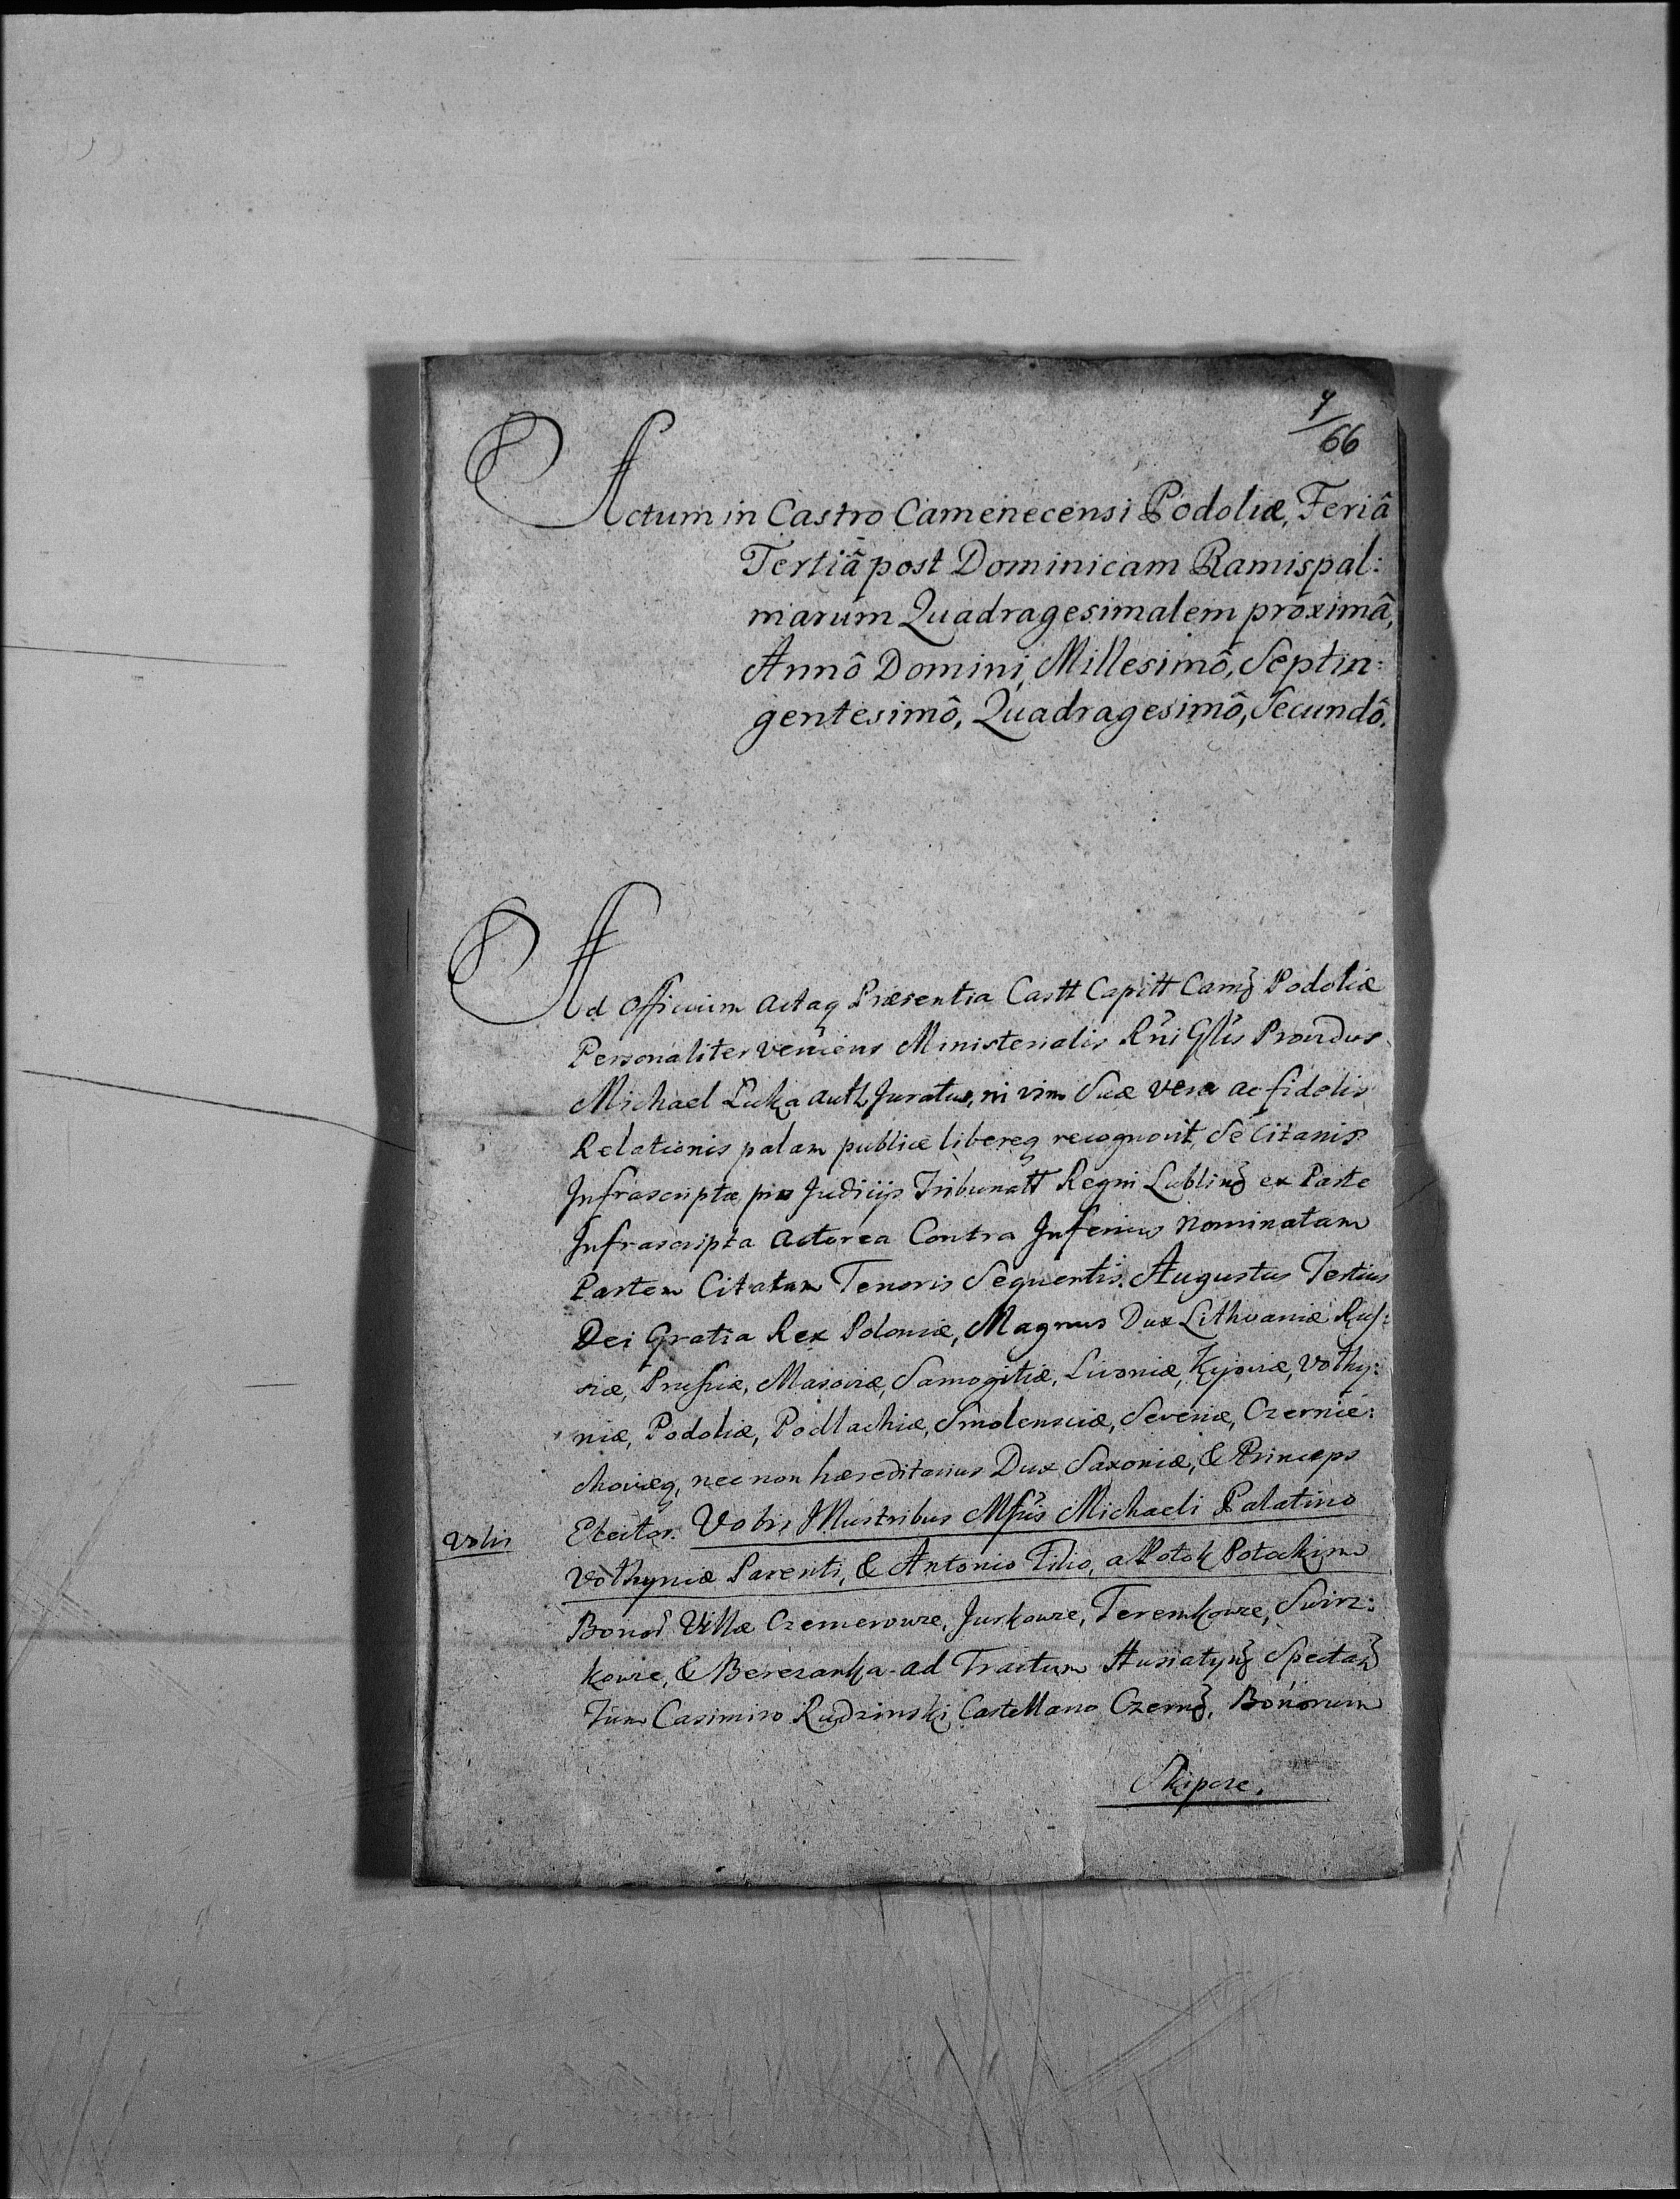 7/66
Actum in Castro Camenecensi Podoliæ, Feriâ
Tertiâ post Dominicam Ramispal:
marum Quadragesimalem proximâ,
Annô Domini, Millesimô, Septin:
gentesimô, Quadragesimô, Secundô.
Ad Officium Actaq Præsentia Castt Capitt Camę Podoliæ
Personaliter veniens Ministerialis Rni Glis Providus
Michael Łuka auth Juratus, in vim Suæ veræ ac fidelis
Relationis palam publice libereq recognovit, Se Citanis
Infrascriptæ pro Judicijs Tribunatt Regni Lublinę ex Parte
Infrascripta Actorea Contra Inferius Nominatam
Partem Citatam Tenoris Sequentis. Augustus Tertius
Dei Gratia Rex Poloniæ, Magnus Dux Lithvaniæ Rus:
siæ, Prussiæ, Masoviæ, Samogitiæ, Livoniæ, Kijoviæ, Volhy:
niæ, Podoliæ, Podlachiæ, Smolensciæ, Severiæ, Czernie:
choviæq, nec non hæreditarius Dux Saxoniæ, & Princeps
Elector. Vobis Illustribus Mfcis Michaeli Palatino
Vobis
Volhyniæ Parenti, & Antonio Filio, a Potok Potockim
Bonor Villæ Czemerowce, Jurkowce, Teremkowce, Swirz:
kowce, & Berezanka ad Tractum Husiatynę Spectaę
Tum Casimiro Rudzinski Castellano Czernę, Bonorum